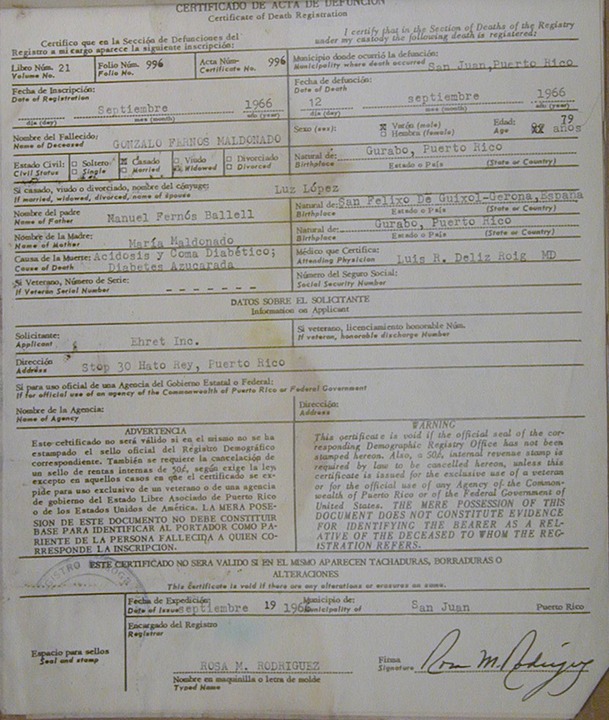 CERTIFICADO DE ACTA DE DEFUNCION
Certificate of Death Registration
Certifico que en la Sección de Defunciones del
Registro a mi cargo aparece la siguiente inscripción:
I certify that in the Section of Deaths of the Registry
under my custody the following death is registered:
Libro Núm. 21 Folio Núm. 996 Acta Núm. 996
Volume No. Folio No. Certificate No.
Municipio donde ocurrió la defunción:
Municipality where death occurred San Juan, Puerto Rico
Fecha de Inscripción:
Date of Registration
septiembre 1966
día (day) mes (month) año (year)
Fecha de defunción:
Date of Death
12 septiembre 1966
día (day) mes (month) año (year)
Nombre del Fallecido:
Name of Deceased GONZALO FERNOS MALDONADO
Sexo (sex): X Varón (male) Edad: 79
Hembra (female) Age años
Estado Civil: Soltero X Casado Viudo Divorciado
Civil Status Single Married Widowed Divorced
Natural de: Gurabo, Puerto Rico
Birthplace Estado o País (State or Country)
Si casado, viudo o divorciado, nombre del cónyuge:
If married, widowed, divorced, name of spouse Luz López
Nombre del padre
Name of Father Manuel Fernós Ballell
Natural de: San Felixo De Guixol-Gerona, España
Birthplace Estado o País (State or Country)
Nombre de la Madre:
Name of Mother María Maldonado
Natural de: Gurabo, Puerto Rico
Birthplace Estado o País (State or Country)
Causa de la Muerte: Acidosis y Coma Diabético;
Cause of Death Diabetes Azucarada
Médico que Certifica:
Attending Physician Luis R. Deliz Roig MD
Si Veterano, Número de Serie:
If Veteran Serial Number
Número del Seguro Social:
Social Security Number
DATOS SOBRE EL SOLICITANTE
Information on Applicant
Solicitante:
Applicant Ehret Inc.
Si veterano, licenciamiento honorable Núm.
If veteran, honorable discharge Number
Dirección
Address Stop 30 Hato Rey, Puerto Rico
Si para uso oficial de una Agencia del Gobierno Estatal o Federal:
If for official use of an agency of the Commonwealth of Puerto Rico or Federal Government
Nombre de la Agencia:
Name of Agency
Dirección:
Address
ADVERTENCIA
Este certificado no será válido si en el mismo no se ha
estampado el sello oficial del Registro Demográfico
correspondiente. También se requiere la cancelación de
un sello de rentas internas de 50¢, según exige la ley,
excepto en aquellos casos en que el certificado se ex-
pide para uso exclusivo de un veterano o de una agencia
de gobierno del Estado Libre Asociado de Puerto Rico
o de los Estados Unidos de América. LA MERA POSE-
SION DE ESTE DOCUMENTO NO DEBE CONSTITUIR
BASE PARA IDENTIFICAR AL PORTADOR COMO PA-
RIENTE DE LA PERSONA FALLECIDA A QUIEN CO-
RRESPONDE LA INSCRIPCION.
WARNING
This certificate is void if the official seal of the cor-
responding Demographic Registry Office has not been
stamped hereon. Also, a 50¢, internal revenue stamp is
required by law to be cancelled hereon, unless this
certificate is issued for the exclusive use of a veteran
or for the official use of any Agency of the Common-
wealth of Puerto Rico or of the Federal Government of
United States. THE MERE POSSESSION OF THIS
DOCUMENT DOES NOT CONSTITUTE EVIDENCE
FOR IDENTIFYING THE BEARER AS A REL-
ATIVE OF THE DECEASED TO WHOM THE REG-
ISTRATION REFERS.
ESTE CERTIFICADO NO SERA VALIDO SI EN EL MISMO APARECEN TACHADURAS, BORRADURAS O
ALTERACIONES
This Certificate is void if there are any alterations or erasures on same.
Fecha de Expedición: Municipio de:
Date of Issue septiembre 19 1966 Municipality of San Juan Puerto Rico
Encargado del Registro
Registrar
Espacio para sellos
Seal and stamp
ROSA M. RODRIGUEZ
Nombre en maquinilla o letra de molde
Typed Name
Firma
Signature Rosa M. Rodríguez